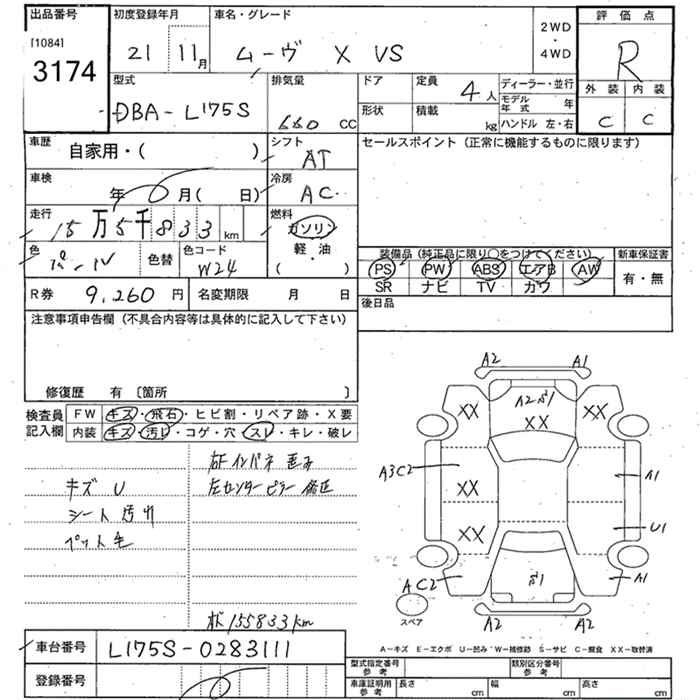 出品番号 初度登録年月 車名・グレード 2WD・4WD 評価点
[1084]
3174 21 11月 ムーヴ X VS R
型式 排気量 ドア 定員 4人 ディーラー・並行 外装 内装
DBA-L175S 660 CC 形状 積載 kg モデル年式 年 C C
ハンドル 左・右
車歴 自家用・( ) シフト AT セールスポイント (正常に機能するものに限ります)
車検 年 月( 日) 冷房 AC
走行 15万5千833km 燃料 ガソリン
軽・油
( )
色 パール 色替 色コード W24 装備品 (純正品に限り○をつけてください) 新車保証書
PS PW ABS エアB AW 有・無
SR ナビ TV カワ
R券 9,260円 名変期限 月 日 後日品
注意事項申告欄 (不具合内容等は具体的に記入して下さい)
修復歴 有 〔箇所 〕
検査員 FW キズ・飛石・ヒビ割・リペア跡・X要
記入欄 内装 キズ・汚レ・コゲ・穴・スレ・キレ・破レ
右Fインパネ 歪み
キズ U 左センターピラー 修正
シート汚れ
ペット毛
155833km
A2 A1
A2
XX XX XX
A3C2 XX A1
XX U1
AC2 A1
A2 A2
スペア
A-キズ E-エクボ U-凹み W-補修跡 S-サビ C-腐食 XX-取替済
車台番号 L175S-0283111
登録番号
型式指定番号 参考 類別区分番号 参考
車庫証明用 参考 長さ cm 幅 cm 高さ cm